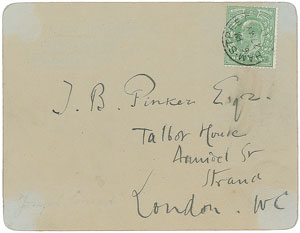 HAMSTEAD
J. B. Pinker Esqre.
Talbot House
Arundel St
Strand
London. WC